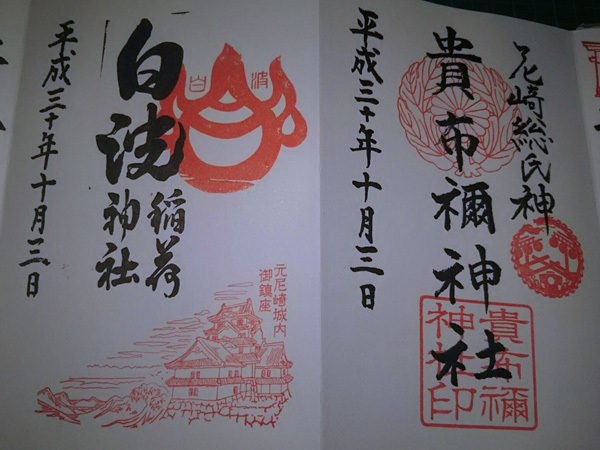 尼崎総氏神
貴布禰神社
平成三十年十月三日
貴布禰
神社印
白波
稲荷
神社
白波
平成三十年十月三日
元尼崎城内
御鎮座